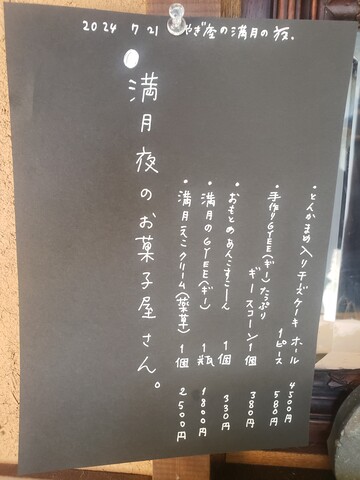 2024 7 21 やぎ座の満月の夜.
満月夜のお菓子屋さん。
・とんかまめ入りチーズケーキ ホール 4500円
1ピース 580円
・手作りGYEE(ギー)たっぷり
ギースコーン1個 380円
・おもとめあんこすこーん 1個 330円
・満月のGYEE(ギー) 1瓶 1800円
・満月えごクリーム(薬草) 1個 2500円